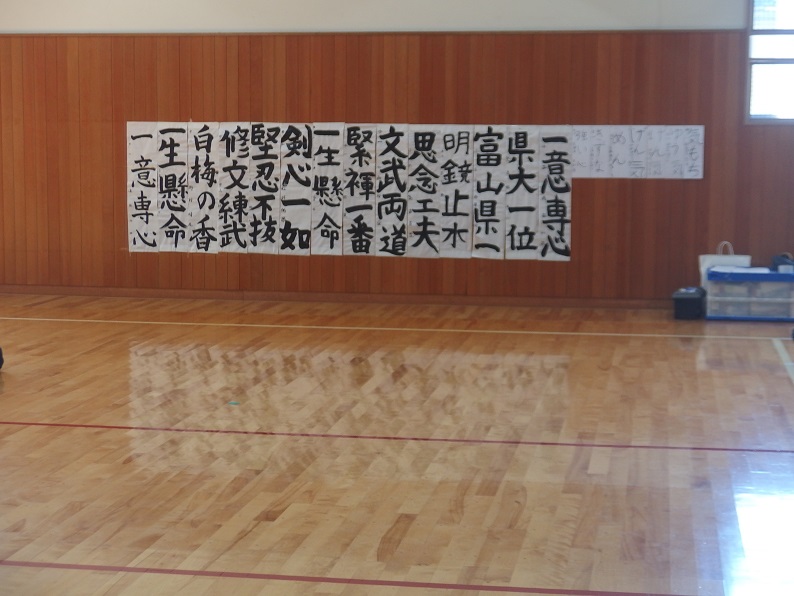 めん
一意専心
県大一位
富山県一
明鏡止水
思念工夫
文武両道
緊褌一番
一生懸命
剣心一如
堅忍不抜
修文練武
白梅の香
一生懸命
一意専心